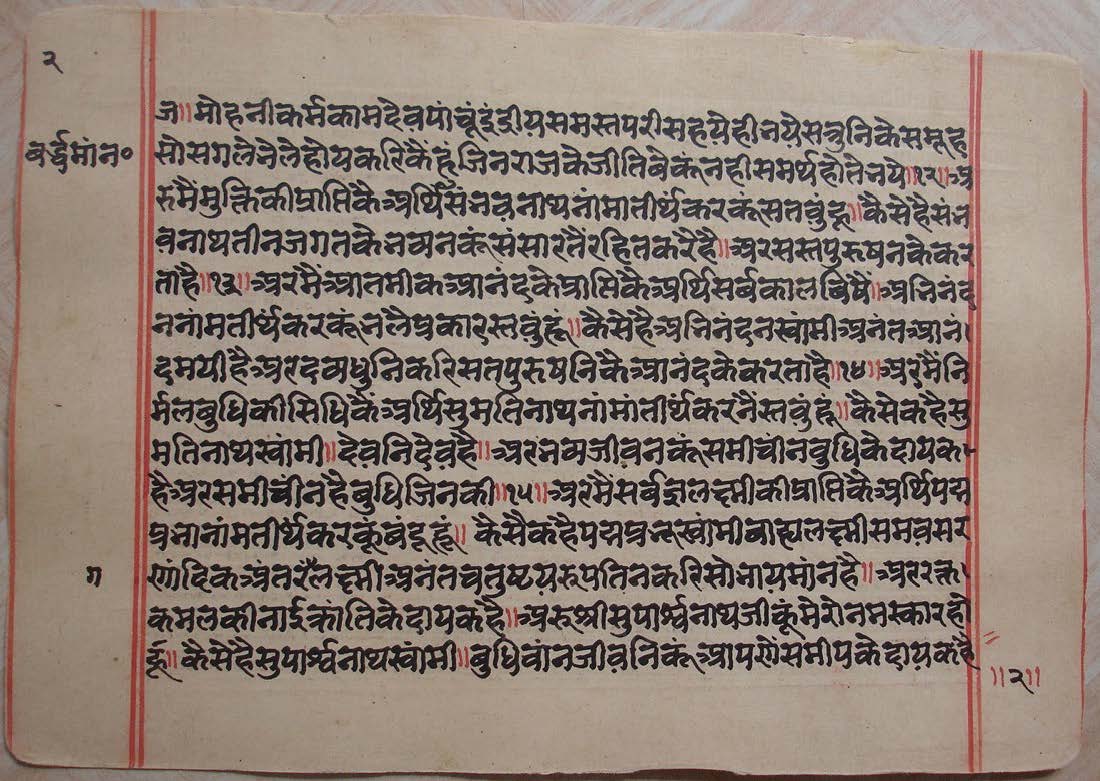 २
वर्द्धमांन॰
ज॥मोहनीकर्मकामदेवपांचूंइंद्रीयसमस्तपरीसहयेहीनयेसत्रुनिकेसमूह
सोसगलेनैलेहोयकरिकैंहूंजिनराजकेजीतिवेकूंनहीसमर्थहोतेनये॥१२॥अ
रुमैंमुक्तिकीप्राप्तिकैअर्थिसंभवनाथनांमातीर्थंकरकूंसतवुंहूं॥कैसेहैसंभ
वनाथतीनजगतकैभव्यनकूंसंसारतैंरहितकरैहै॥अरसस्तपुरुषनकेकर
ताहै॥१३॥अरमैंआतमीकआनंदकैप्राप्तिकैअर्थिसर्वकालविषैं॥अभिनंद
ननांमतीर्थंकरकूंभलैप्रकारस्तवुंहूं॥कैसेहैअभिनंदनस्वांमीअनंतआनं।
दमयीहैअरदव्यधुनिकरिसतपुरुषनिकैआनंदकेकरताहै॥१४॥अरमैंनि
र्मलबुधिकीसिधिकैंअर्थिसुमतिनाथनांमांतीर्थंकरनैंस्तवुंहूं॥कैसेकहैसु
मतिनाथस्वांमी॥देवनिदेवहै॥अरभव्यजीवनकूंसमीचीनबुधिकैदायक
हैअरसमीचीनहैबुधिजिनकी॥१५॥अरमैंसर्वज्ञलक्ष्मीकीप्राप्तिकैअर्थिपद्म
प्रभानांमतीर्थंकरकूंवदूहूं॥ कैसैकहैपद्मप्रभस्वांमीबाह्यलक्ष्मीसमवसर
णांदिकअंतरैलक्ष्मीअनंतचतुष्टयरूपतिनकरिसोभायमांनहै॥अररक्त।
ग
कमलकीनाईकांतिकेदायकहै॥अरुश्रीसुपार्श्वनाथजीकूंमेरोनमस्कारहो
हू॥कैसेहैसुपार्श्वनाथस्वांमी॥बुधिवांनजीवनिकूंआपणेंसमीपकेदायकहै
॥२॥